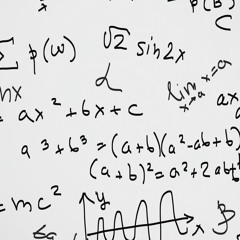 p(B)
x
C
Σ p(w) √2 sin2x
α
lim x = a
x→a
nx
= ax² + bx + c
ax
a³ + b³ = (a+b)(a²-ab+b
(a+b)² = a² + 2ab+
= mc²
y
x